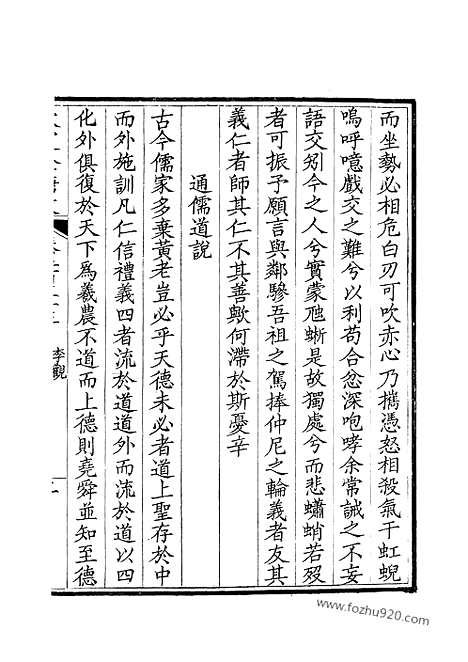 而坐勢必相危白刃可吹赤心乃攜憑怒相殺氣干虹蜺
嗚呼噫戲交之難兮以利苟合忿深咆哮余常誡之不妄
語交矧今之人兮實蒙虺蜥是故獨處兮而悲蠨蛸若歿
者可振予願言與鄰驂吾祖之駕捧仲尼之輪義者友其
義仁者師其仁不其善歟何滯於斯憂辛
通儒道說
古今儒家多棄黃老豈必乎天德未必者道上聖存於中
而外施訓凡仁信禮義四者流於道道外而流於道以四
化外俱復於天下為羲農不道而上德則堯舜並知至德
李觀
www.fozhu920.com